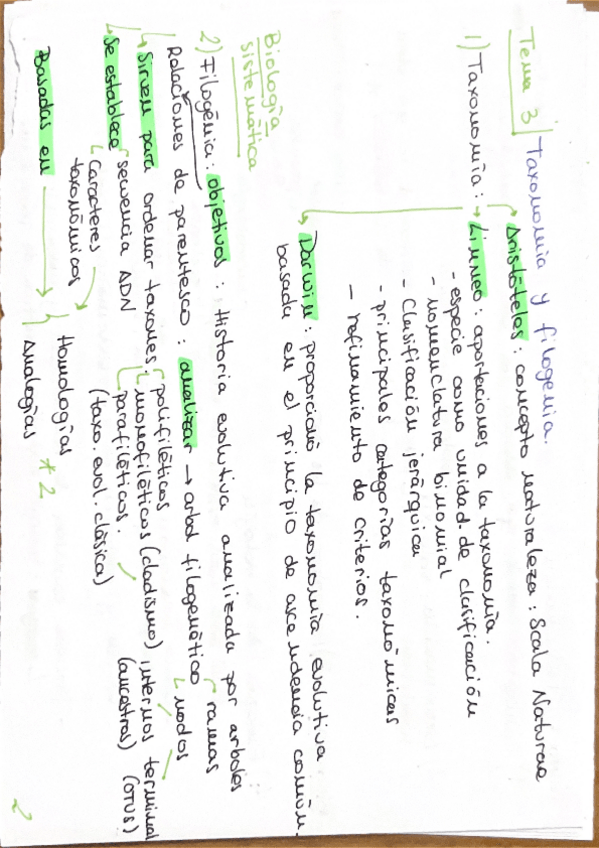 Tema 3 Taxonomía y filogenia.
1) Taxonomía: Aristóteles: concepto naturaleza: Scala Naturae
Linneo: aportaciones a la taxonomía.
- especie como unidad de clasificación
- nomenclatura binomial
- Clasificación jerárquica
- principales categorías taxonómicas
- refinamiento de criterios.
Darwin: proporcionó la taxonomía evolutiva
basada en el principio de ascendencia común.
Biología
sistemática
2) Filogénia: objetivos: Historia evolutiva analizada por arboles
Relaciones de parentesco: analizar → arbol filogenético
ramas
nodos
internos (ancestros)
terminal (OTUS)
Sirven para ordenar taxones:
polifiléticos
monofiléticos (cladismo)
parafiléticos.
(taxo. evol. clásica)
Se establece secuencia ADN
Caracteres
taxonómicos
Basadas en → Homologías
Analogías
* 2
2